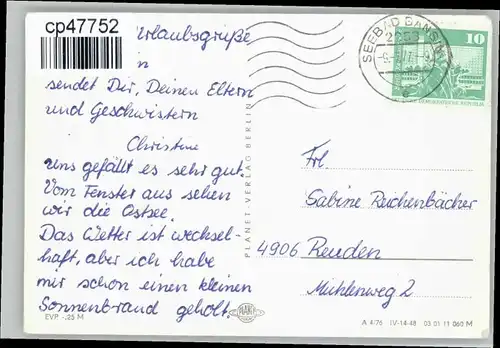 cp47752
Urlaubsgrüße
n
sendet Dir, Deinen Eltern
und Geschwistern
Christine
Uns gefällt es sehr gut.
Vom Fenster aus sehen
wir die Ostsee.
Das Wetter ist wechsel-
haft, aber ich habe
mir schon einen kleinen
Sonnenbrand geholt.
EVP -,25 M
PLANET VERLAG BERLIN
SEEBAD BANSIN
2253
10
DEUTSCHE DEMOKRATISCHE REPUBLIK
Frl.
Sabine Reichenbächer
4906 Reuden
Mühlenweg 2
A 4/76 IV-14-48 03 01 11 060 M